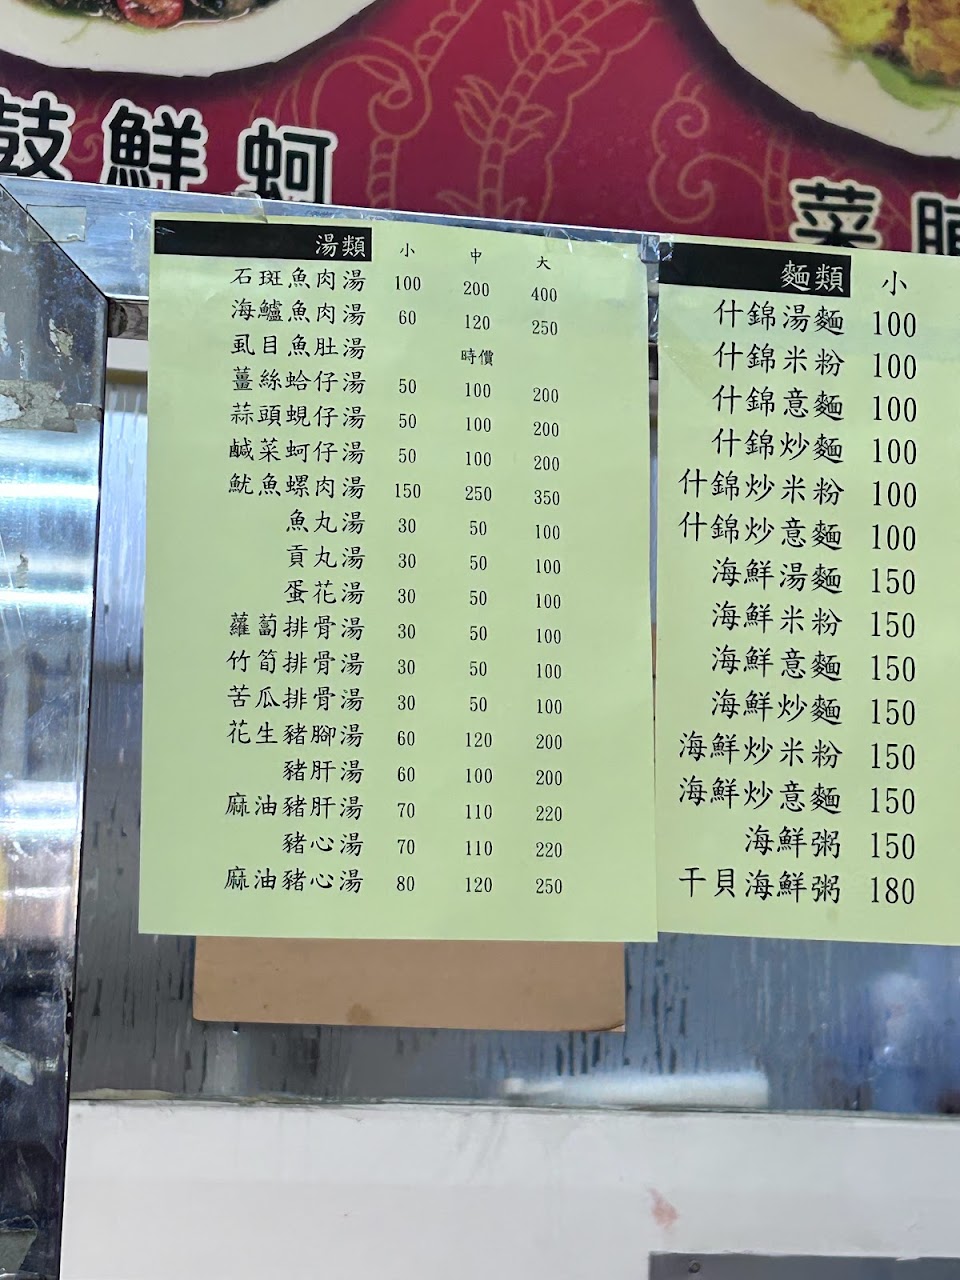 鼓鮮蚵
菜脯
湯類 小 中 大
石斑魚肉湯 100 200 400
海鱸魚肉湯 60 120 250
虱目魚肚湯 時價
薑絲蛤仔湯 50 100 200
蒜頭蜆仔湯 50 100 200
鹹菜蚵仔湯 50 100 200
魷魚螺肉湯 150 250 350
魚丸湯 30 50 100
貢丸湯 30 50 100
蛋花湯 30 50 100
蘿蔔排骨湯 30 50 100
竹筍排骨湯 30 50 100
苦瓜排骨湯 30 50 100
花生豬腳湯 60 120 200
豬肝湯 60 100 200
麻油豬肝湯 70 110 220
豬心湯 70 110 220
麻油豬心湯 80 120 250
麵類 小
什錦湯麵 100
什錦米粉 100
什錦意麵 100
什錦炒麵 100
什錦炒米粉 100
什錦炒意麵 100
海鮮湯麵 150
海鮮米粉 150
海鮮意麵 150
海鮮炒麵 150
海鮮炒米粉 150
海鮮炒意麵 150
海鮮粥 150
干貝海鮮粥 180